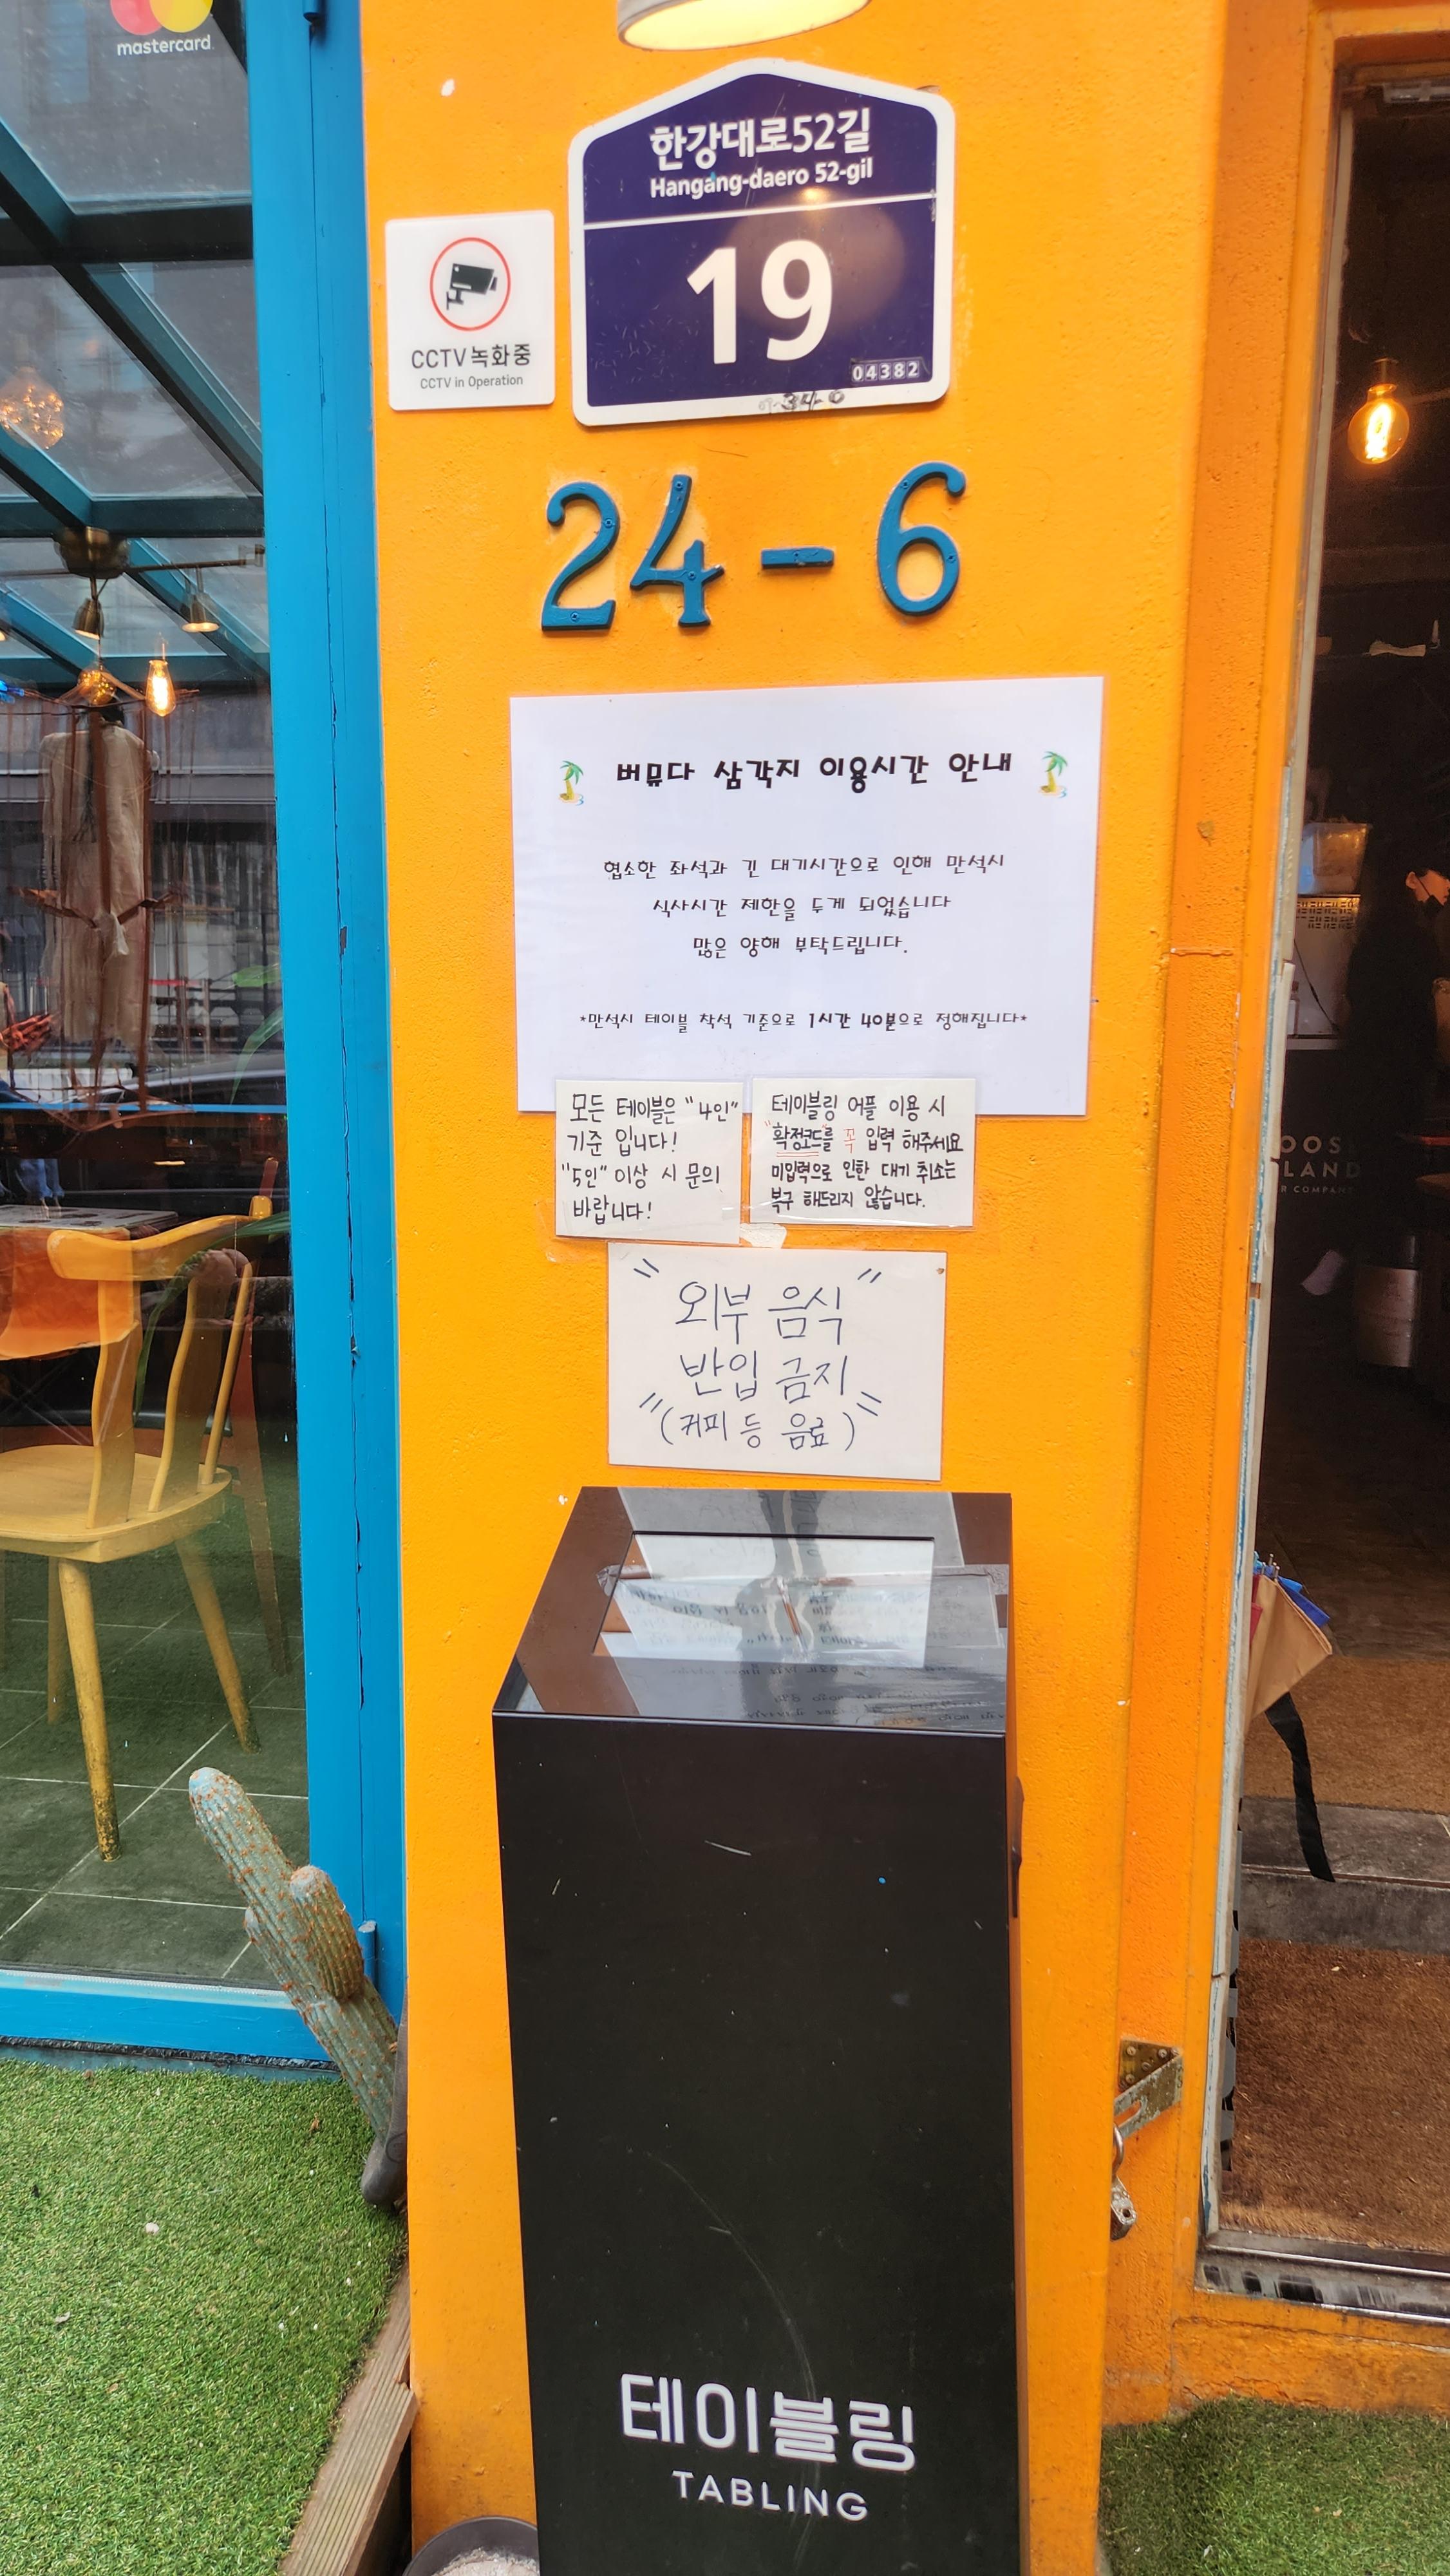 mastercard
한강대로52길
Hangang-daero 52-gil
19
04382
CCTV 녹화중
CCTV in Operation
24-6
버뮤다 삼각지 이용시간 안내
협소한 좌석과 긴 대기시간으로 인해 만석시
식사시간 제한을 두게 되었습니다
많은 양해 부탁드립니다.
*만석시 테이블 착석 기준으로 1시간 40분으로 정해집니다*
모든 테이블은 "4인"
기준 입니다!
"5인" 이상 시 문의
바랍니다!
테이블링 어플 이용 시
"확정코드"를 꼭 입력 해주세요
미입력으로 인한 대기 취소는
복구 해드리지 않습니다.
외부 음식
반입 금지
(커피 등 음료)
테이블링
TABLING